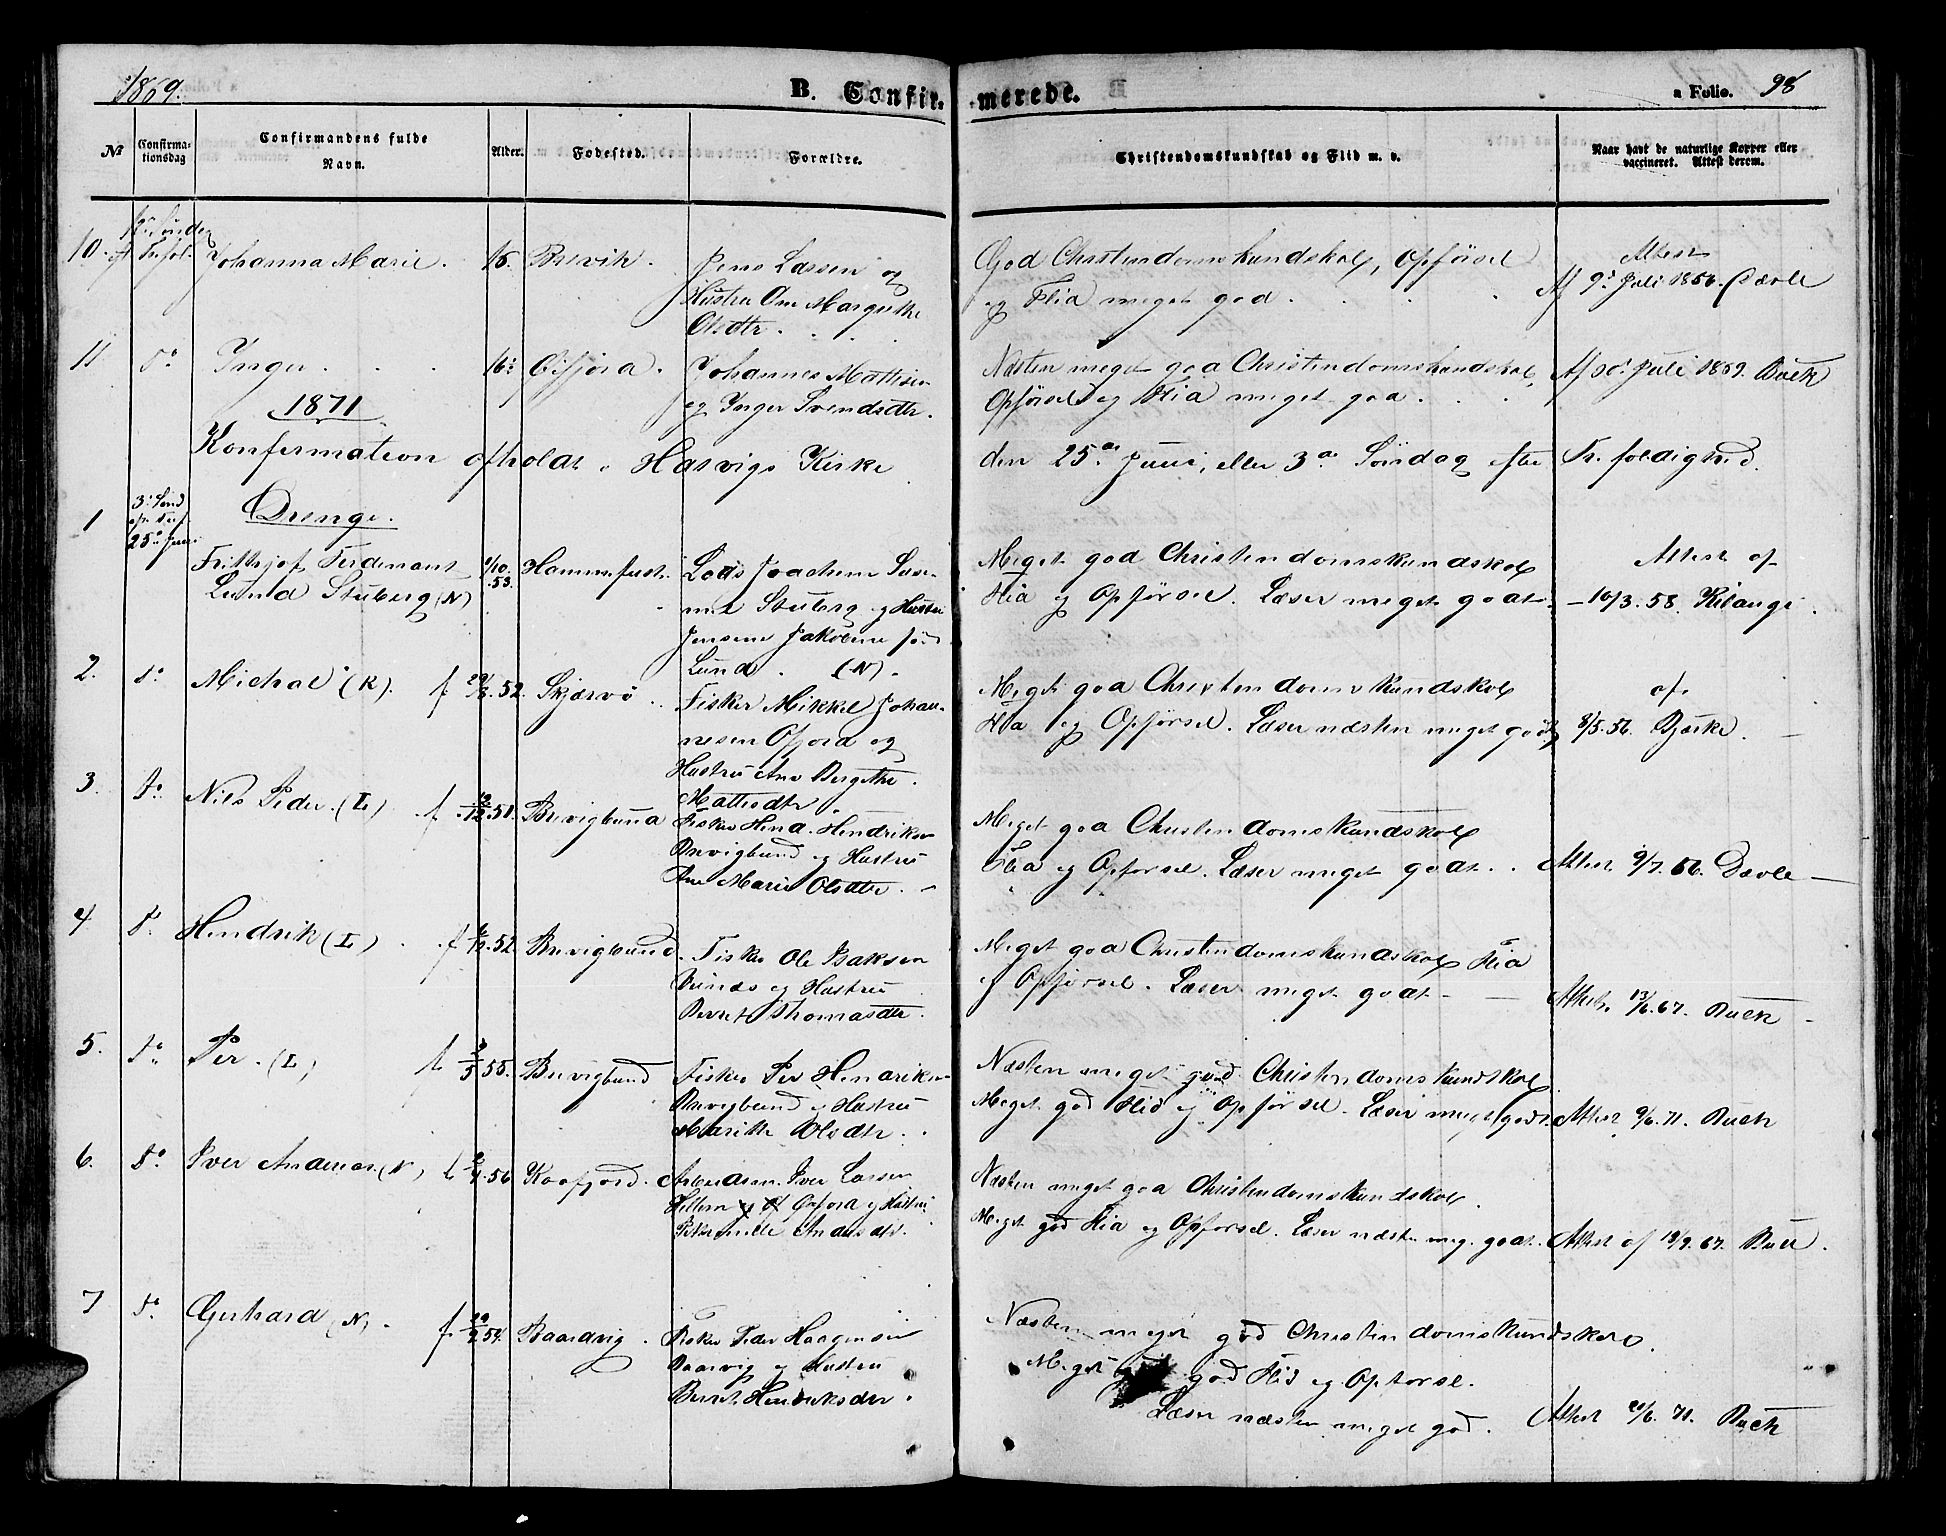 1869.
B. Confir-
merede.
a Folio. 98
№
Confirma-
tionsdag
Confirmandens fulde
Navn.
Alder.
Fødested.
Forældre.
Christendomskundskab og Flid m. v.
Naar havt de naturlige Kopper eller
vaccineret. Attest derom.
10. Johanna Marie. 15. Brevik. Jens Lassen og
Hustru Ane Margrethe
Olsdtr.
God Christendomskundskab, Opførsel
og Flid meget god.
Attest
Af 9de Juli 1856. Dævle
11 Do Inger 16 Øifjord. Johannes Mattisen
og Inger Svendsdtr.
Næsten meget god Christendomskundskab,
Opførsel og Flid meget god.
Af 30. Juli 1869. Buck
1871
Konfermation afholdt i Hasvigs Kirke
den 25de Juni, eller 3de Søndag efter Trefoldighed.
Drenge.
1 3. Sønd
efr. Tref.
25de Juni
Frithjof Ferdinant
Lund Stuberg (N)
9/10.
53.
Hammerfest. Lods Joachem
Stuberg og Hustru
Jensine Jakobine fød
Lund. (N).
Meget god Christendomskundskab
Flid og Opførsel. Læser meget godt.
Attest af
10/3. 58. Kilange.
2. Do Michal (K). f. 29/8. 52. Skjærvø. Fisker Mikkel Johan-
nesen Ofjord og
Hustru Ane Bergithe
Mattisdtr.
Meget god Christendomskundskab
Flid og Opførsel. Læser næsten meget godt,
af.
8/5. 56. Bjerke.
3. Do Nils Peder. (L) f. 12/12. 51. Brevigbund Fisker Hend. Hendriksen
Brevigbund og Hustru
Ane Marie Olsdtr.
Meget god Christendomskundskab
Flid og Opførsel. Læser meget godt.
Attest 9/7. 56. Dævle
4 Do Hendrik (L) f. 52. Brevigbund. Fisker Ole Isaksen
og Hustru
Berret Thomasdtr.
Meget god Christendomskundskab, Flid
og Opførsel. Læser meget godt
Attest. 13/6. 67. Buck
5. Do Per. (L) f. 9/5 55. Brevigbund Fisker Per Hendriksen
Brevigbund og Hustru
Marithe Olsdtr.
Næsten meget god Christendomskundskab.
Meget god Flid og Opførsel. Læser meget godt.
Attest 9/6. 71. Buck
6. Do Iver Andreas (N) f. 56. Kaafjord. Arbeidsm. Iver Larsen
Øxfjord og Hustru
Petternille Andersdtr.
Næsten meget god Christendomskundskab.
Meget god Flid og Opførsel. Læser næsten meg. godt.
Attest af 19/9. 67. Buck.
7 Do Gerhard (N). f. 54. Baardvig. Fisker Peder Haagensen
Baarvig og Hustru
Beret Hendriksdtr.
Næsten meget god Christendomskundskab.
Meget god Flid og Opførsel.
Læser næsten meget god.
Attest 21/6. 71. Buck